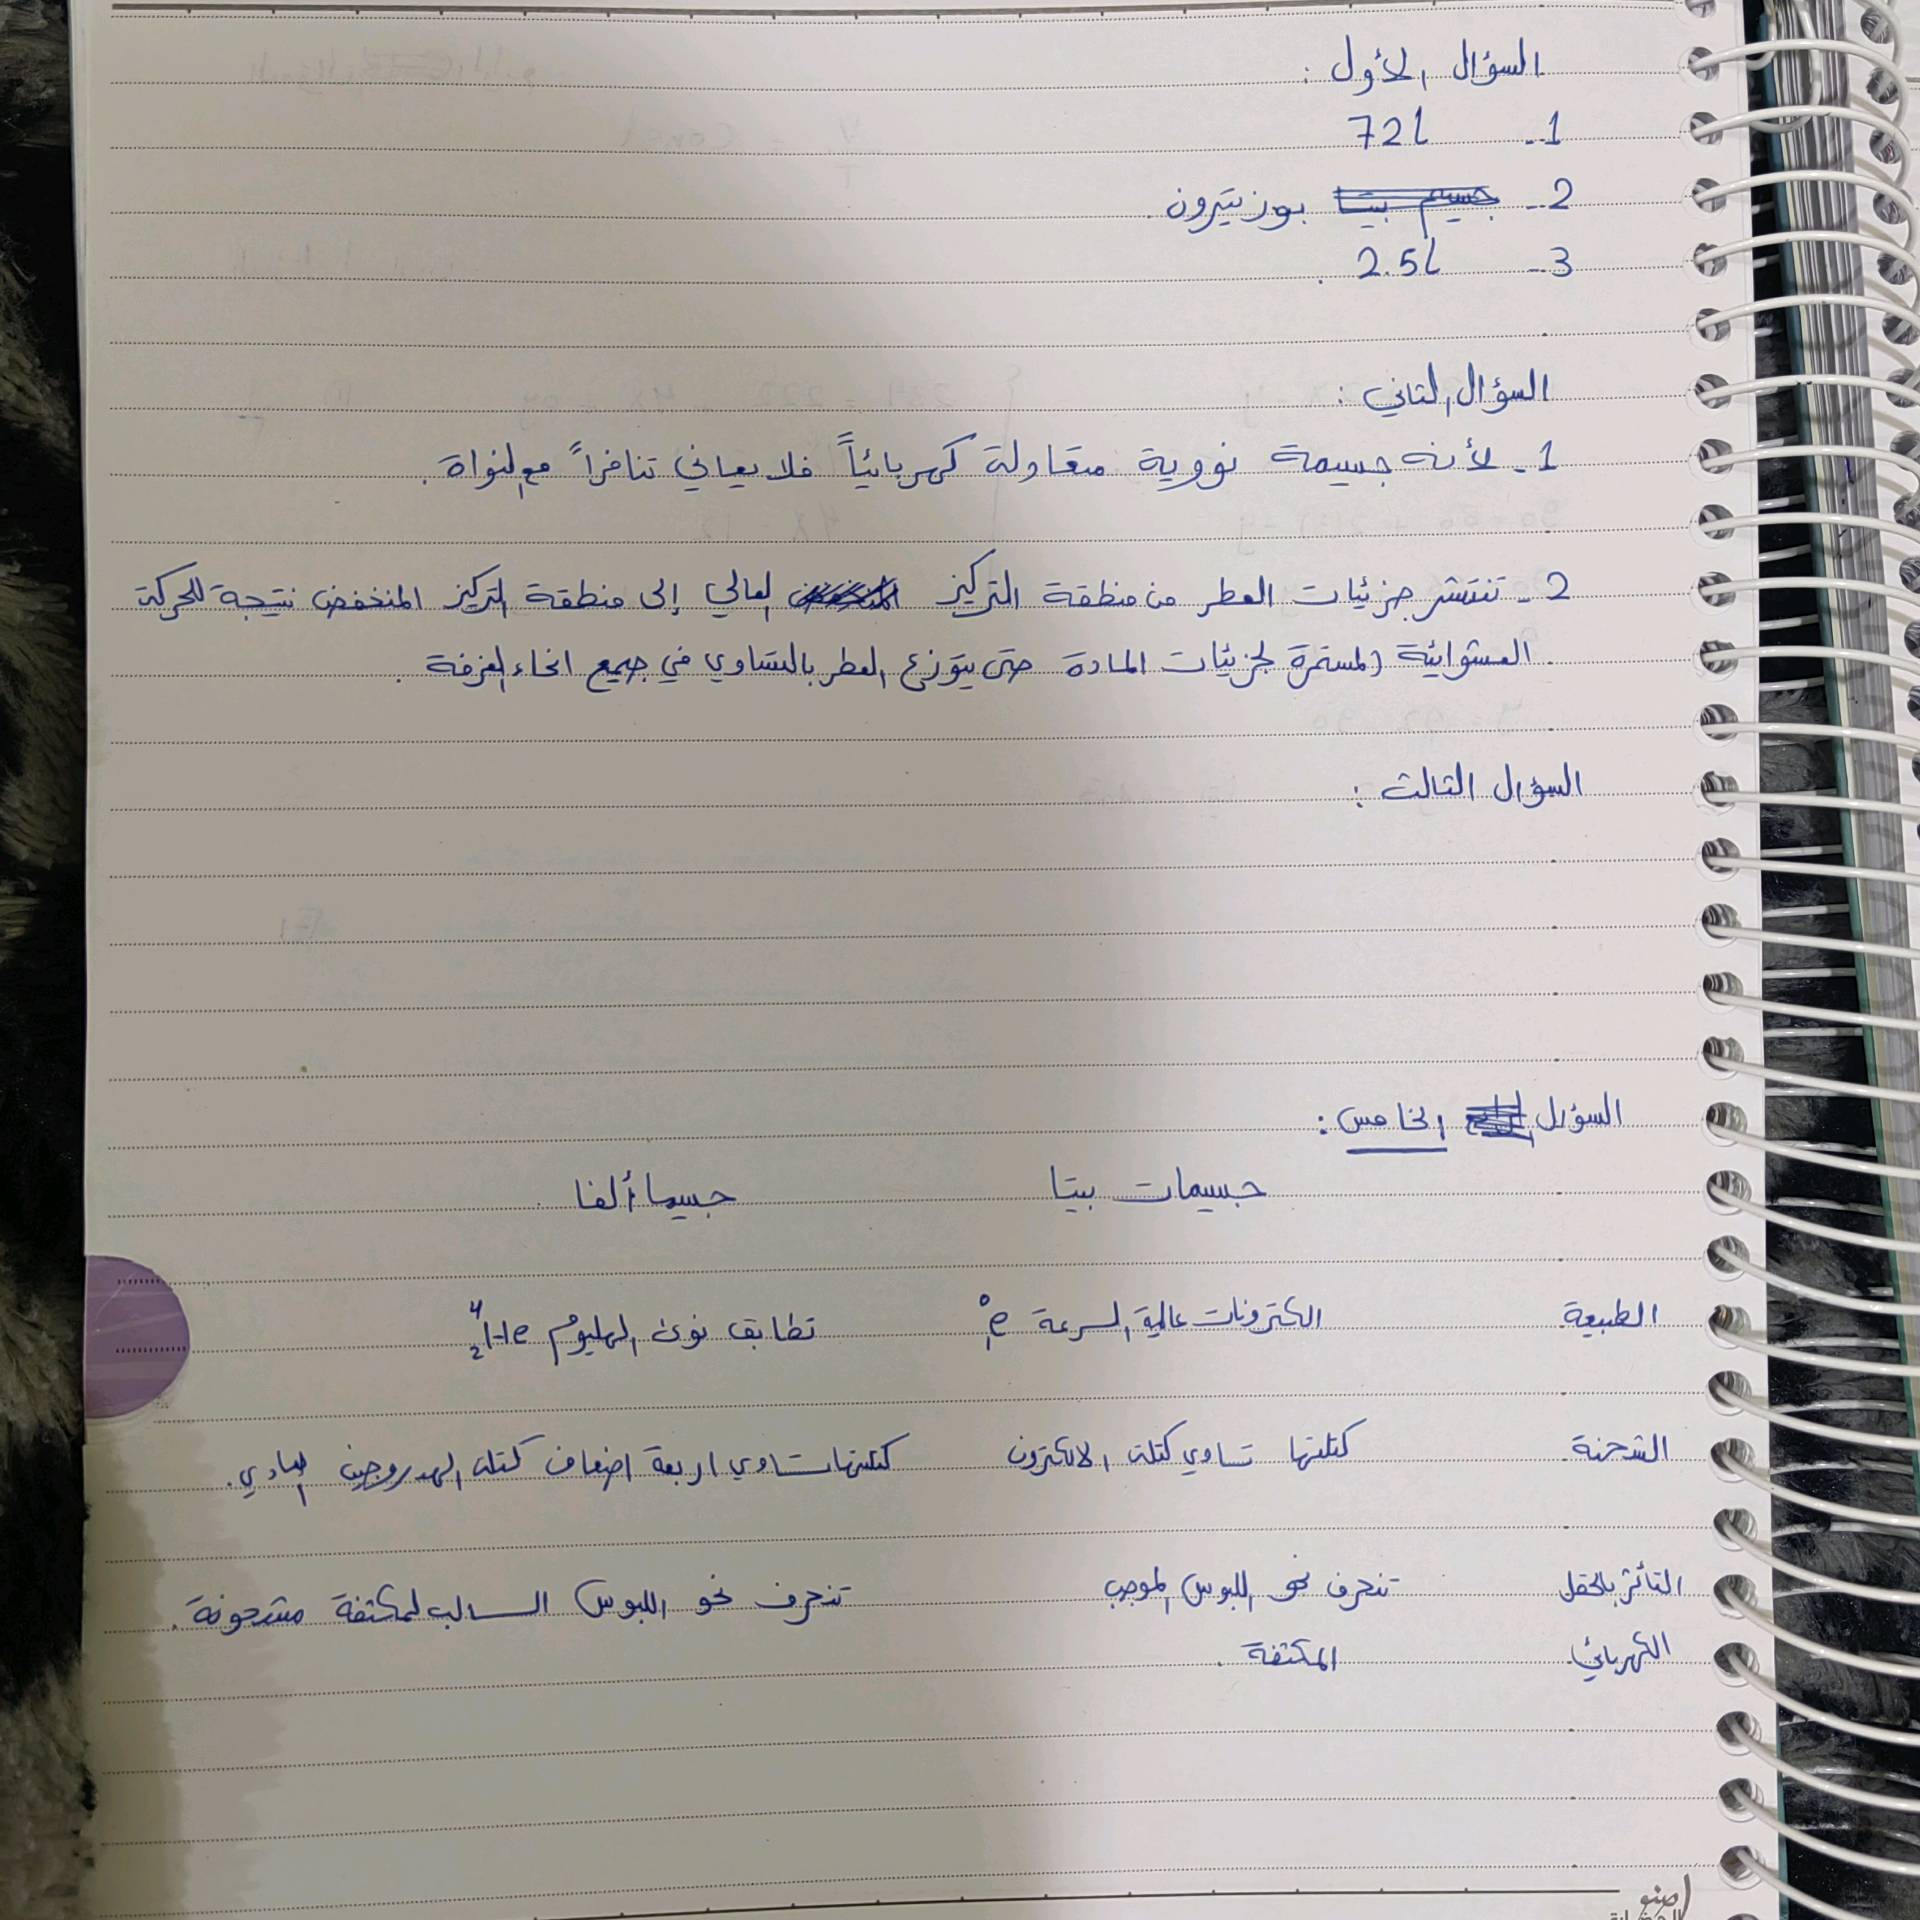 السؤال الأول :
1- 72l
2- بوزيترون .
3- 2.5l .
السؤال الثاني :
1- لأنه جسيمة نووية متعادلة كهربائياً فلا يعاني تنافراً مع النواة .
2- تنتشر جزيئات العطر من منطقة التركيز العالي إلى منطقة التركيز المنخفض نتيجة للحركة
العشوائية المستمرة لجزيئات المادة حتى يتوزع العطر بالتساوي في جميع انحاء الغرفة .
السؤال الثالث :
السؤال الخامس :
جسيمات بيتا جسيما ألفا
الطبيعة الكترونات عالية السرعة e تطابق نوى الهليوم ⁴₂He
الشحنة كتلتها تساوي كتلة الالكترون كتلتها تساوي اربعة اضعاف كتلة الهدروجين العادي .
التأثر بالحقل تنحرف نحو اللبوس الموجب تنحرف نحو اللبوس السالب لمكثفة مشحونة .
الكهربائي المكثفة .